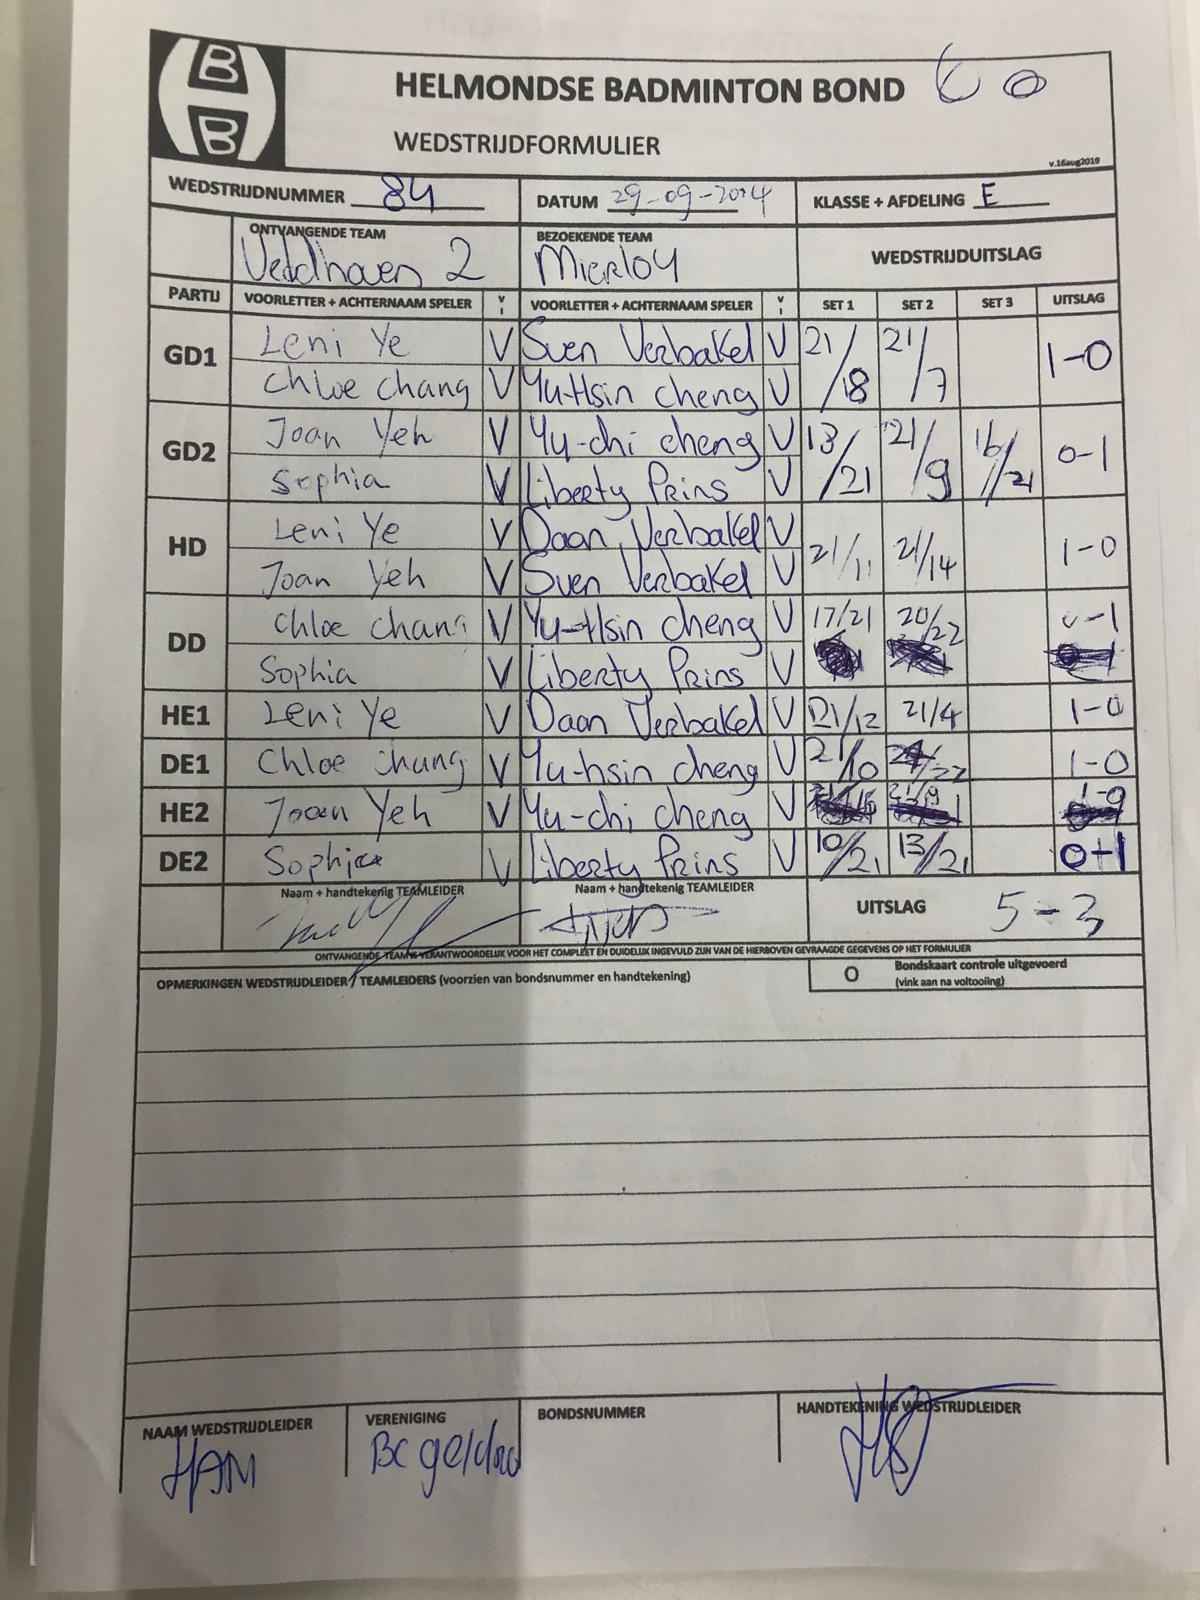 B
B
HELMONDSE BADMINTON BOND
WEDSTRIJDFORMULIER
v.16aug2019
WEDSTRIJDNUMMER 84 DATUM 29-09-2024 KLASSE + AFDELING E
ONTVANGENDE TEAM BEZOEKENDE TEAM WEDSTRIJDUITSLAG
Veldhoven 2 Mierlo4
PARTIJ VOORLETTER + ACHTERNAAM SPELER V I VOORLETTER + ACHTERNAAM SPELER V I SET 1 SET 2 SET 3 UITSLAG
GD1 Leni Ye V Sven Verbakel V 21/18 21/7 1-0
Chloe Chang V Yu-Hsin cheng V
GD2 Joan Yeh V Yu-chi cheng V 13/21 21/9 16/21 0-1
Sophia V Liberty Prins V
HD Leni Ye V Daan Verbakel V 21/11 21/14 1-0
Joan Yeh V Sven Verbakel V
DD Chloe Chang V Yu-Hsin cheng V 17/21 20/22 0-1
Sophia V Liberty Prins V
HE1 Leni Ye V Daan Verbakel V 21/12 21/4 1-0
DE1 Chloe Chang V Yu-hsin cheng V 21/10 /22 1-0
HE2 Joan Yeh V Yu-chi cheng V 21/19 1-0
DE2 Sophia V Liberty Prins V 10/21 13/21 0-1
Naam + handtekenig TEAMLEIDER Naam + handtekenig TEAMLEIDER UITSLAG 5-3
ONTVANGENDE TEAM IS VERANTWOORDELIJK VOOR HET COMPLEET EN DUIDELIJK INGEVULD ZIJN VAN DE HIERBOVEN GEVRAAGDE GEGEVENS OP HET FORMULIER
OPMERKINGEN WEDSTRIJDLEIDER / TEAMLEIDERS (voorzien van bondsnummer en handtekening) O Bondskaart controle uitgevoerd
(vink aan na voltooiing)
NAAM WEDSTRIJDLEIDER VERENIGING BONDSNUMMER HANDTEKENING WEDSTRIJDLEIDER
HAM BC geldrop